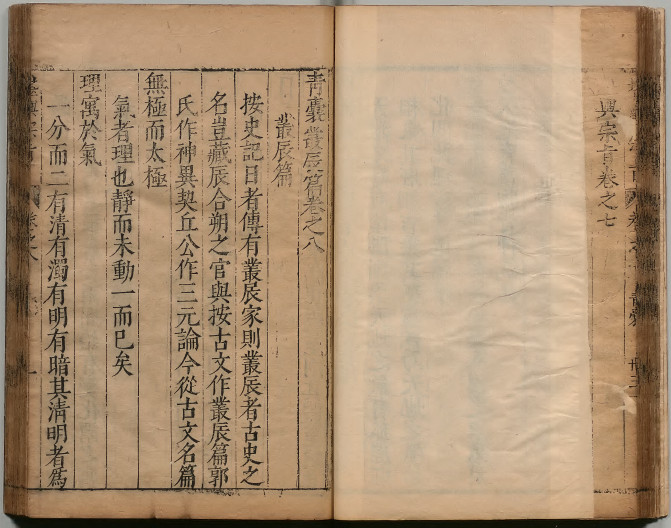 興宗言卷之七
青囊叢辰篇卷之八
叢辰篇
按史記日者傳有叢辰家則叢辰者古史之
名豈藏辰合朔之官與按古文作叢辰篇郭
氏作神異契丘公作三元論今從古文名篇
無極而太極
氣者理也靜而未動一而已矣
理寓於氣
一分而二有清有濁有明有暗其清明者為